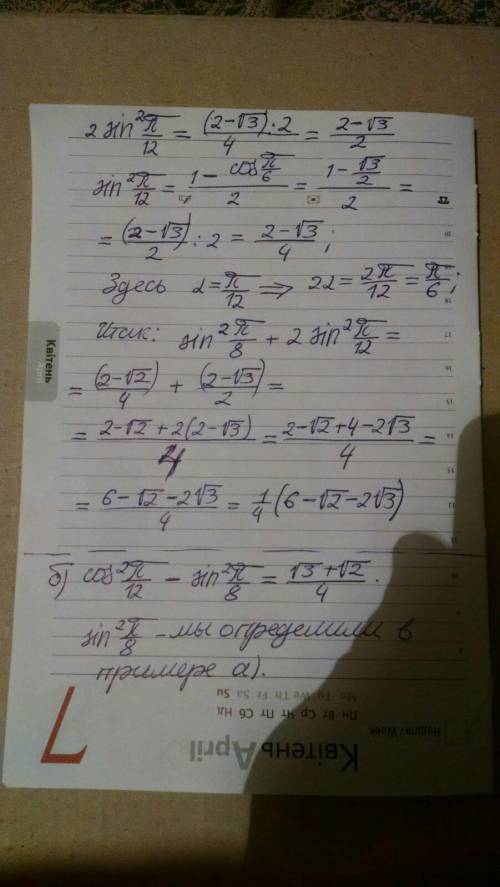 2 sin²π/12 = (2-√3)·2/4 = 2-√3/2
sin²π/12 = 1-cosπ/6/2 = 1-√3/2/2 =
= (2-√3)/2 : 2 = 2-√3/4;
Здесь α=π/12 ⟹ 2α=2π/12=π/6;
Итак: sin²π/8 + 2 sin²π/12 =
= (2-√2)/4 + (2-√3)/2 =
= 2-√2+2(2-√3)/4 = 2-√2+4-2√3/4 =
= 6-√2-2√3/4 = 1/4(6-√2-2√3)
б) cos²π/12 - sin²π/8 = √3+√2/4.
sin²π/8 - мы определили в
примере а).
Квітень
April
Mo Tu We Th Fr Sa Su
Пн Вт Ср Чт Пт Сб Нд
Неділя / Week
7
Квітень April